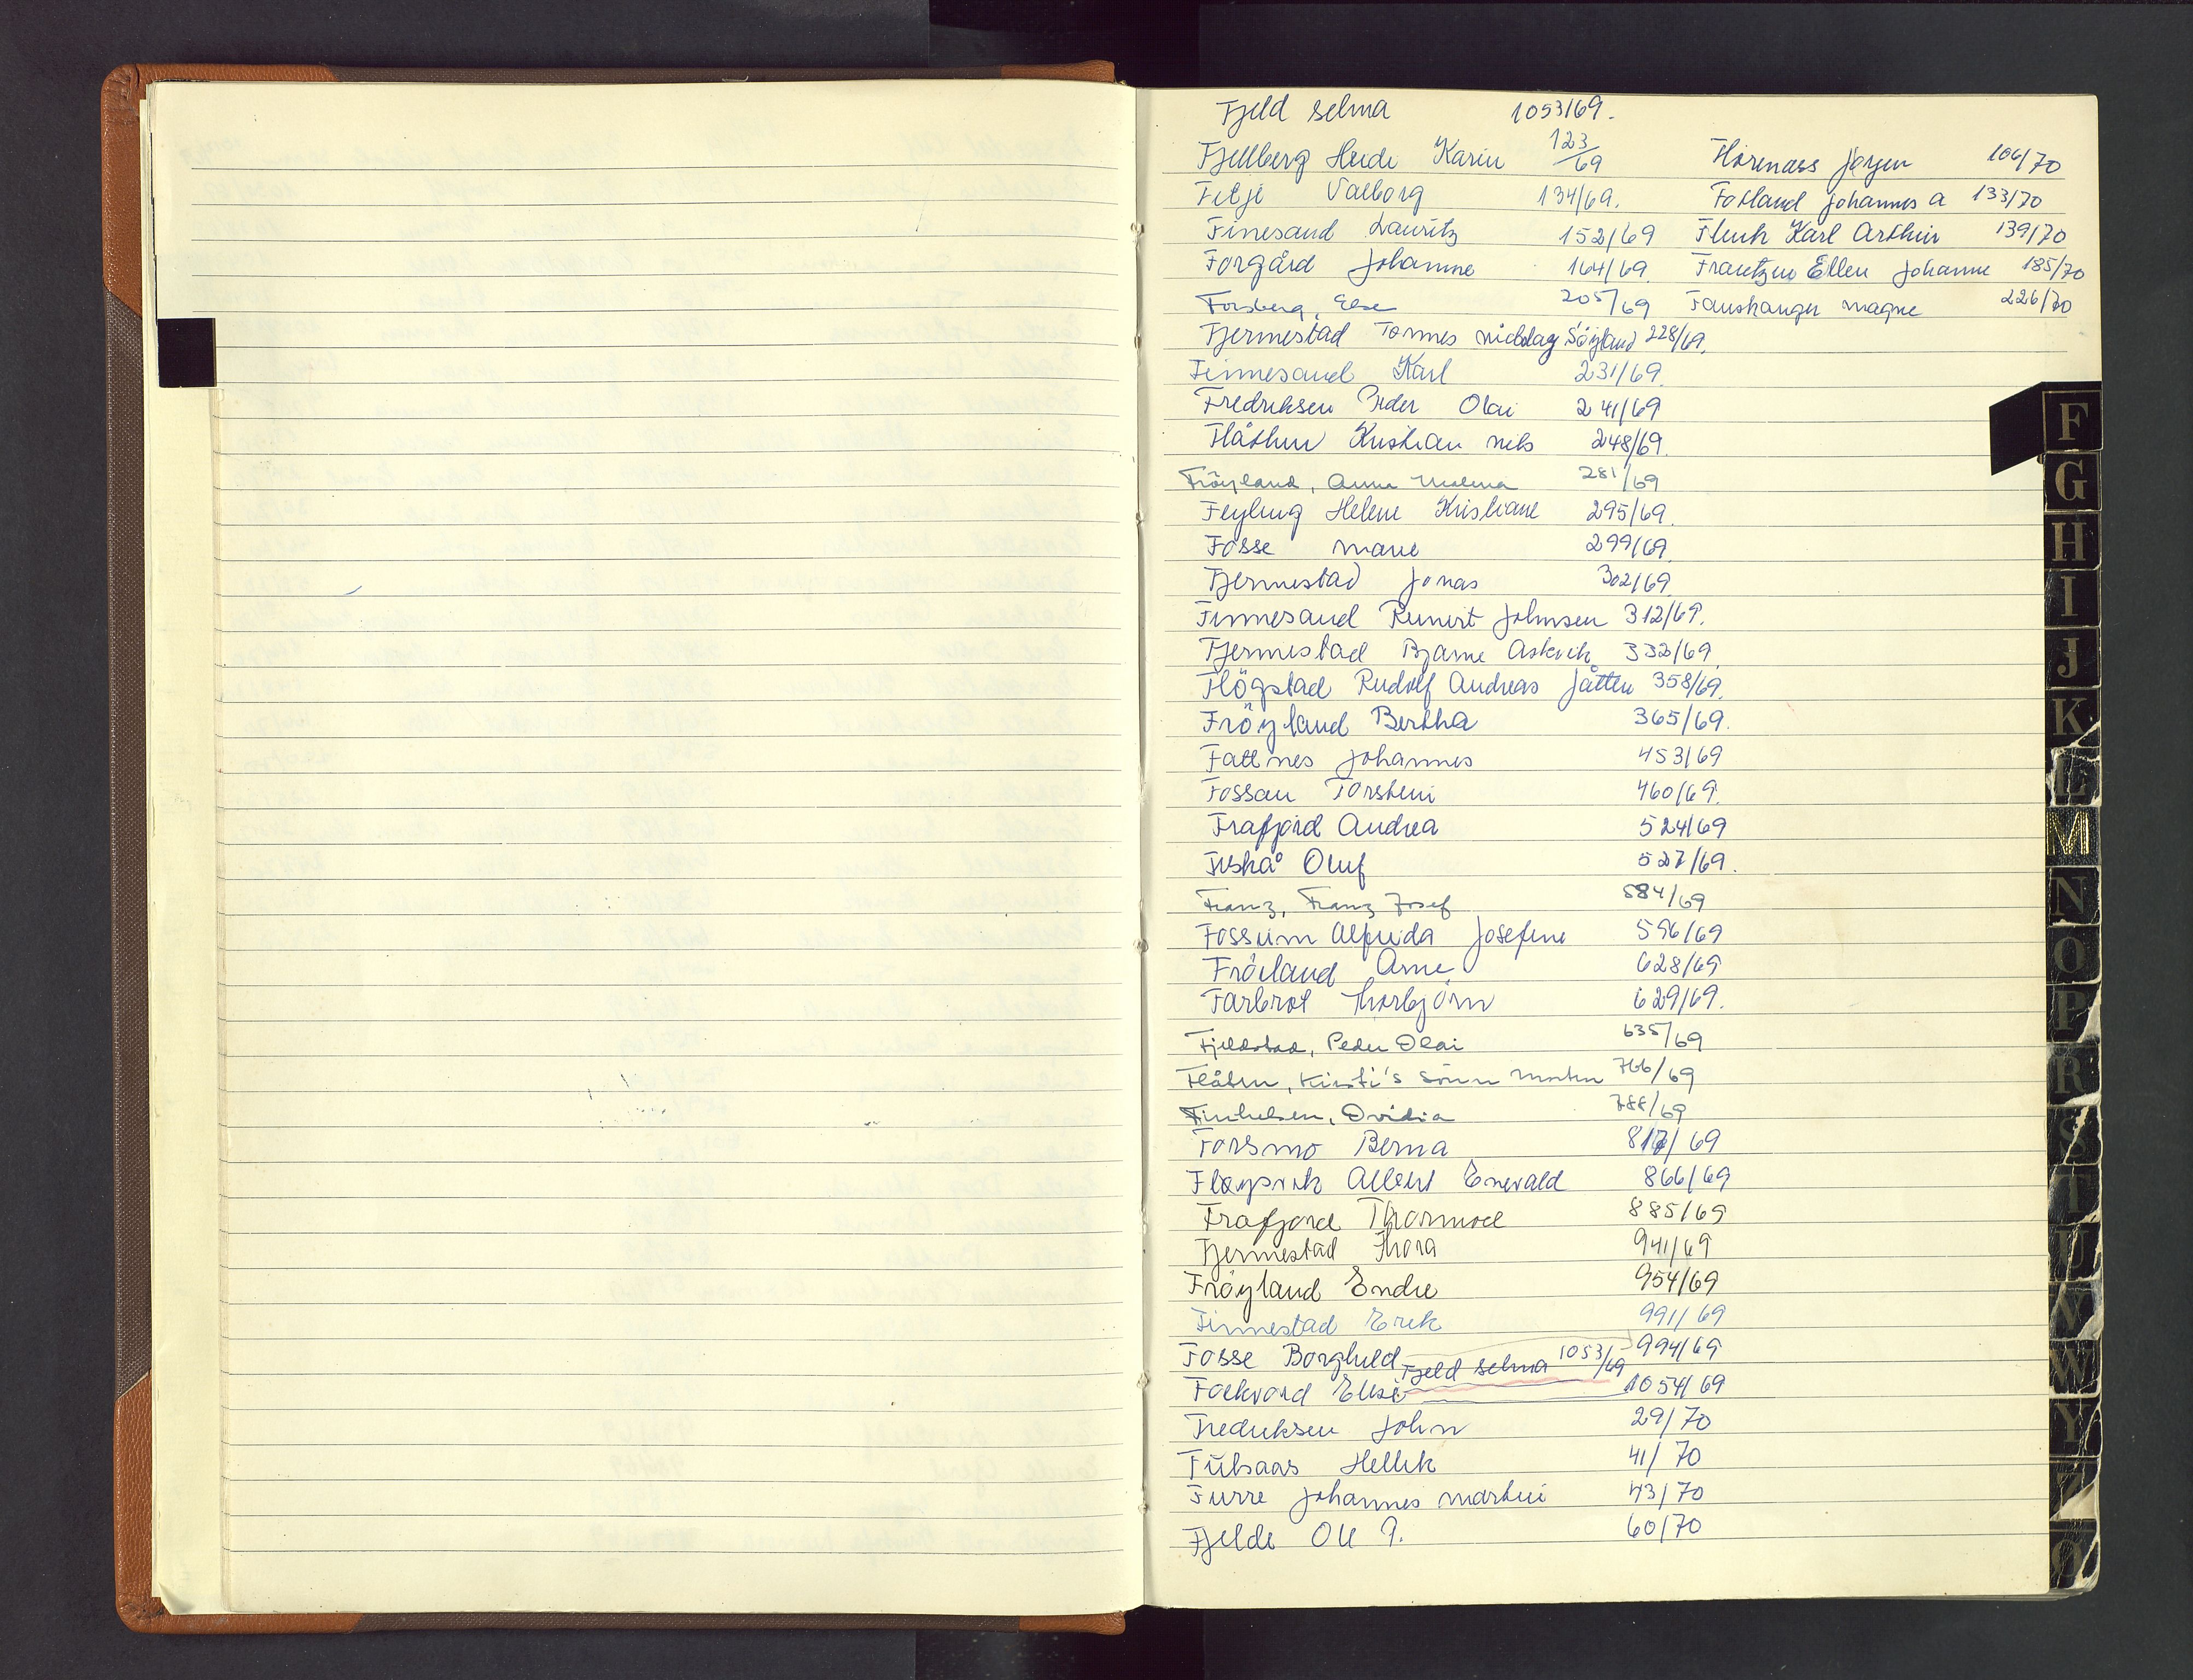 Fjeld Selma 1053/69.
Fjellberg Heidi Karin 123/69
Fitje Valborg 134/69.
Finesand Lauritz 152/69
Forgård Johanne 164/69
Forsberg, Else 205/69
Fjermestad Tonnes Middlag Söyland 228/69.
Finnesand Karl 231/69.
Fredriksen Peder Olai 241/69
Flåthen Kristian Nils 248/69.
Fröyland, Anna Malena 281/69
Feyling Helene Kristiane 295/69.
Fosse Marie 299/69
Fjermestad Jonas 302/69
Finnesand Reinert Johnsen 312/69.
Fjermestad Bjarne Askvik 332/69.
Flögstad Rudolf Andreas Jåtten 358/69.
Fröyland Bertha 365/69.
Fattnes Johannes 453/69
Fossan Torstein 460/69.
Frafjord Andrea 524/69
Fiskå Oluf 527/69.
Franz, Franz Josef 584/69
Fossum Alfrida Josefine 596/69
Fröiland Arne 628/69
Farbrot Thorbjörn 629/69.
Fjeldstad, Peder Olai 635/69
Flåten, Kirsti's Sönn Morten 766/69
Ovidia 788/69
Forsmo Berna 69
Fløysvik Albert Enevald 866/69
Frafjord Thormod 885/69
Fjermestad Thora 941/69
Fröyland Endre 954/69
Finnestad Erik 991/69
Fosse Borghild 994/69
Fjeld Selma 1053/69
Folkvord Elise 1054/69
Fredriksen John 29/70
Hellik 41/70
Furre Johannes Martin 43/70
Fjelde Ole P. 60/70
Hørenæss Jørgen 106/70
Forland Johannes A 133/70
Flenk Karl Arthur 139/70
Frantzen Ellen Johanne 185/70
Fauskanger Magne 226/70
F
G
H
I
J
K
L
M
N
O
P
R
S
T
U
V
W
Y
Z
Ø